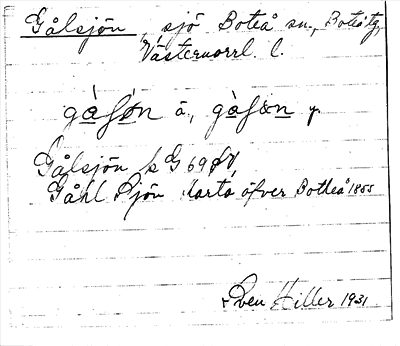 Gålsjön, sjö Boteå sn., Boteå tg,
Västernorrl. l.
gàʃøn ä., gàʃøn y.
Gålsjön k G 69
Gåhl Sjön Karta öfver Botheå 1855
Sven Hiller 1931